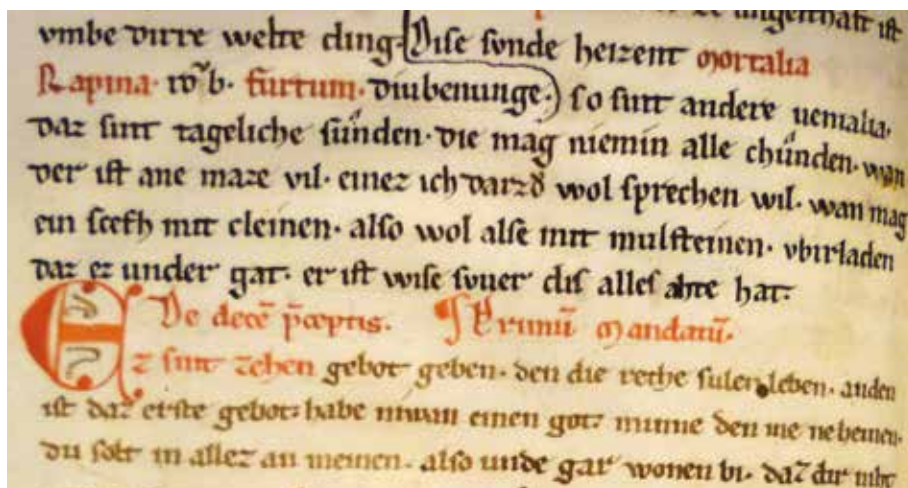 ungerthaft ist
vmbe dirre welte ding. Dise sunde heizent mortalia
Rapina. furtum. diubenunge. so sint andere uenialia.
daz sint tageliche sunden. die mag niemin alle chunden. wan
der ist ane maze vil. einez ich darzů wol sprechen wil. wan mag
ein scefh mit cleinen. also wol alse mit mulsteinen. vbirladen
daz ez under gat. er ist wise swer dis alles ahte hat.
De decē p̄ceptis. ¶ Primū mandatū.
Ez sint zehen gebot geben. den die rethe sulen leben. anden
ist daz erste gebot. habe niwan einen got. minne den
du solt in allez an meinen. also unde gar wonen bi. daz dir niht